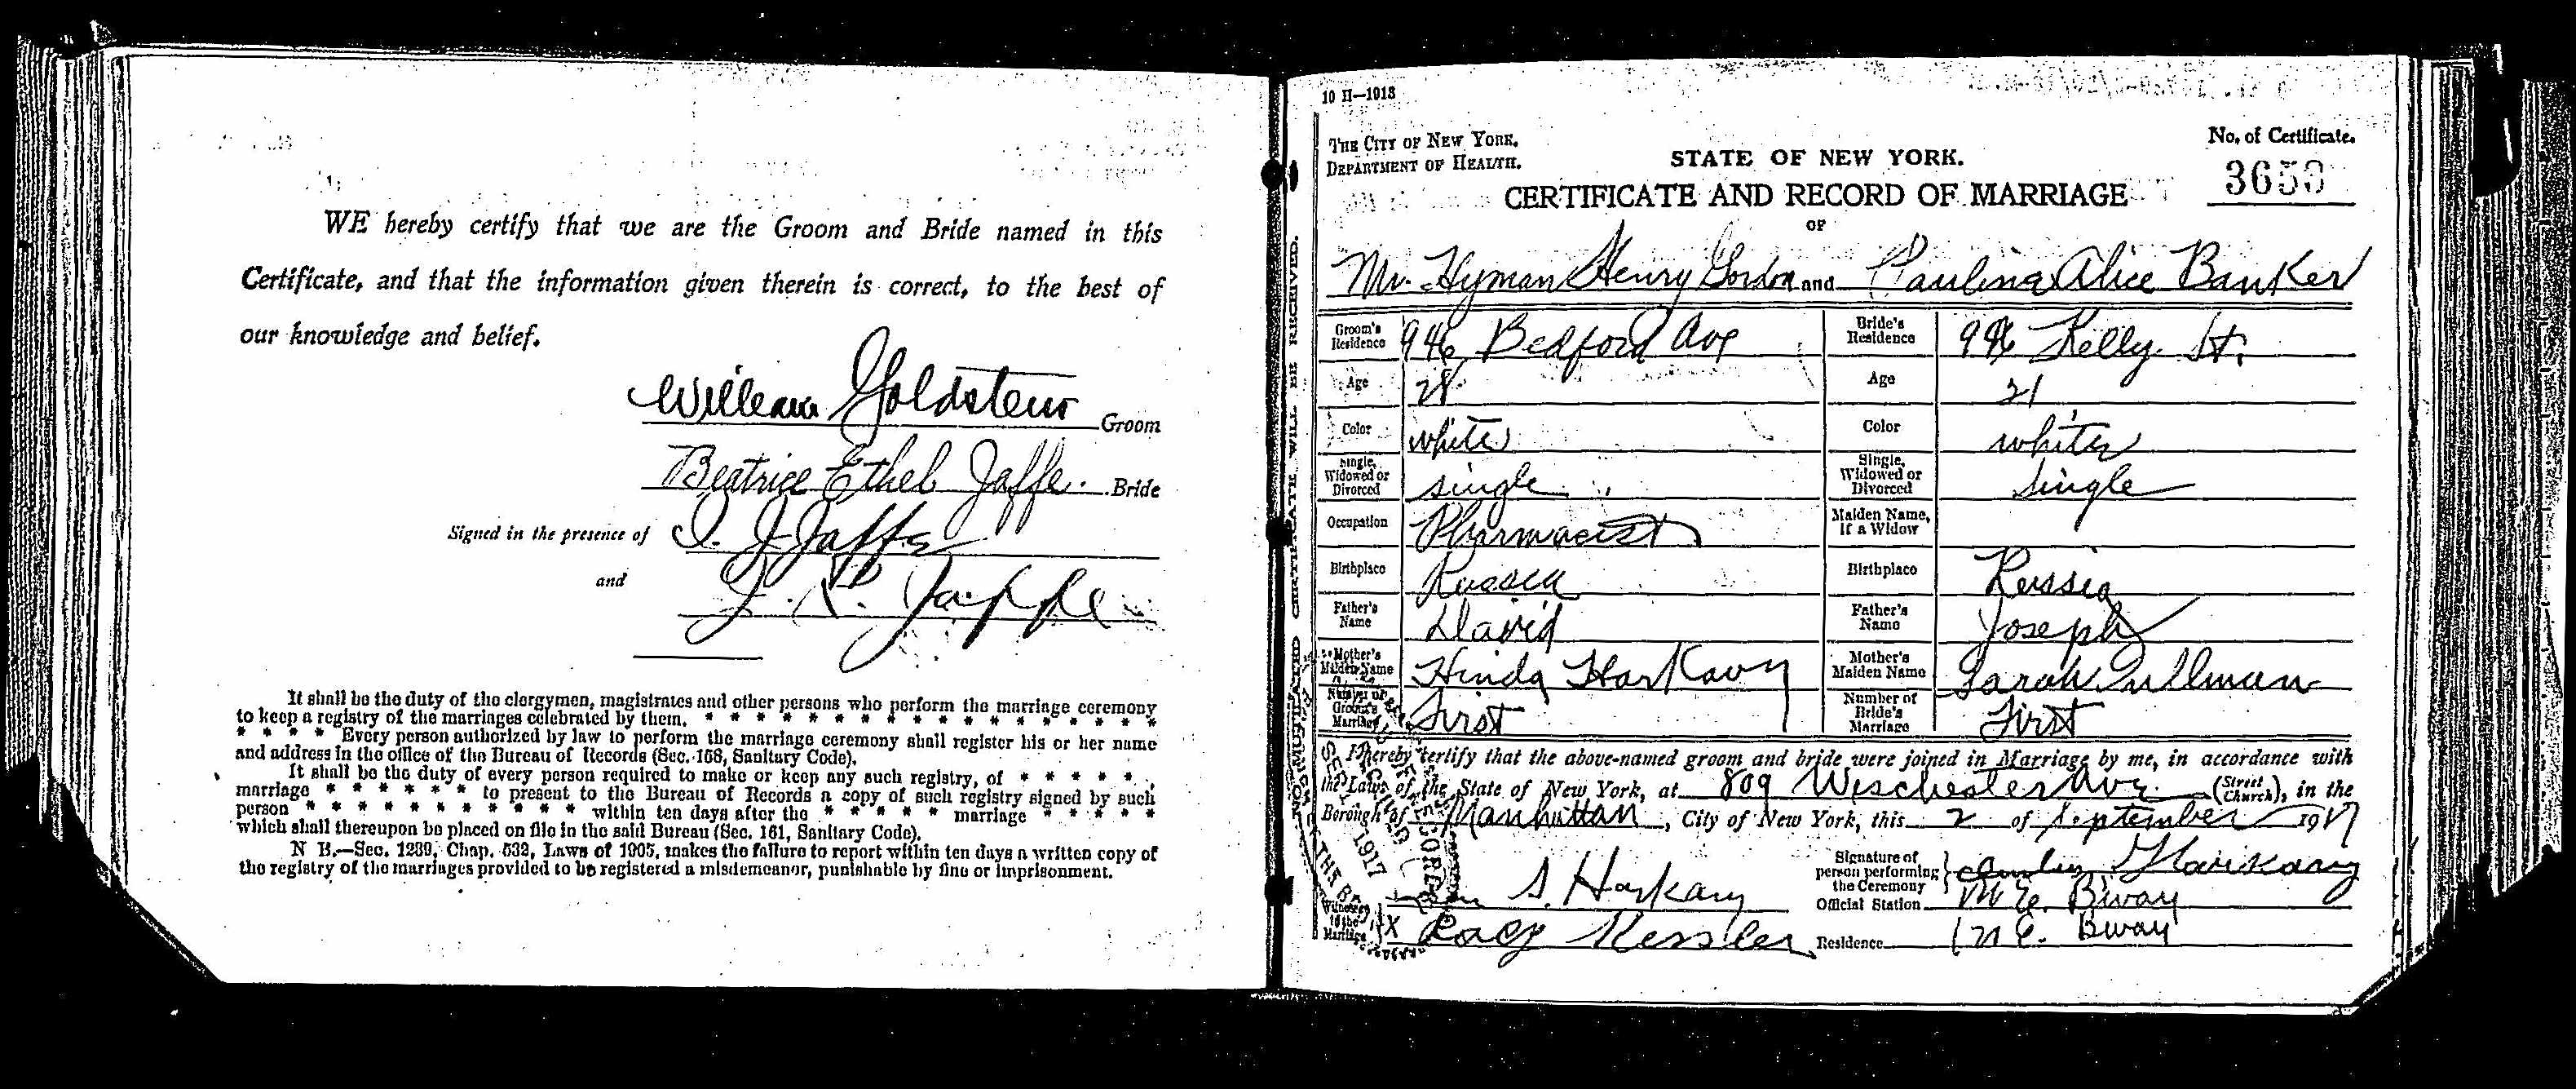 WE hereby certify that we are the Groom and Bride named in this
Certificate, and that the information given therein is correct, to the best of
our knowledge and belief.
William Goldstein Groom
Beatrice Ethel Jaffe. Bride
Signed in the presence of I. J. Jaffe
and J. Jaffe
It shall be the duty of the clergymen, magistrates and other persons who perform the marriage ceremony
to keep a registry of the marriages celebrated by them. * * * * * * * * * * * * * * * * * *
* * * * Every person authorized by law to perform the marriage ceremony shall register his or her name
and address in the office of the Bureau of Records (Sec. 168, Sanitary Code).
It shall be the duty of every person required to make or keep any such registry, of * * * * *
marriage * * * * * * to present to the Bureau of Records a copy of such registry signed by such
person * * * * * * * * * * * within ten days after the * * * * * marriage * * * * *
which shall thereupon be placed on file in the said Bureau (Sec. 161, Sanitary Code).
N B.—Sec. 1239, Chap. 532, Laws of 1905, makes the failure to report within ten days a written copy of
the registry of the marriages provided to be registered a misdemeanor, punishable by fine or imprisonment.
NO MUTILATED CERTIFICATE WILL BE RECEIVED.
10 H—1913
THE CITY OF NEW YORK.
DEPARTMENT OF HEALTH.
STATE OF NEW YORK.
No. of Certificate.
3653
CERTIFICATE AND RECORD OF MARRIAGE
OF
Mr. Hyman Henry Gordon and Paulina Alice Banker
Groom's Residence 946 Bedford Ave Bride's Residence 946 Kelly St.
Age 28 Age 21
Color white Color white
Single, Widowed or Divorced single Single, Widowed or Divorced Single
Occupation Pharmacist Maiden Name, if a Widow
Birthplace Russia Birthplace Russia
Father's Name David Father's Name Joseph
Mother's Maiden Name Hinda Harkavy Mother's Maiden Name Sarah Pullman
Number of Groom's Marriage First Number of Bride's Marriage First
I hereby certify that the above-named groom and bride were joined in Marriage by me, in accordance with
the Laws of the State of New York, at 809 Weschester Ave. (Street Church), in the
Borough of Manhattan, City of New York, this 2 of September 1917
S. Harkavy Signature of person performing the Ceremony Harkavy
Official Station E. Bway
Witnesses to the Marriage X Kessler Residence E. Bway